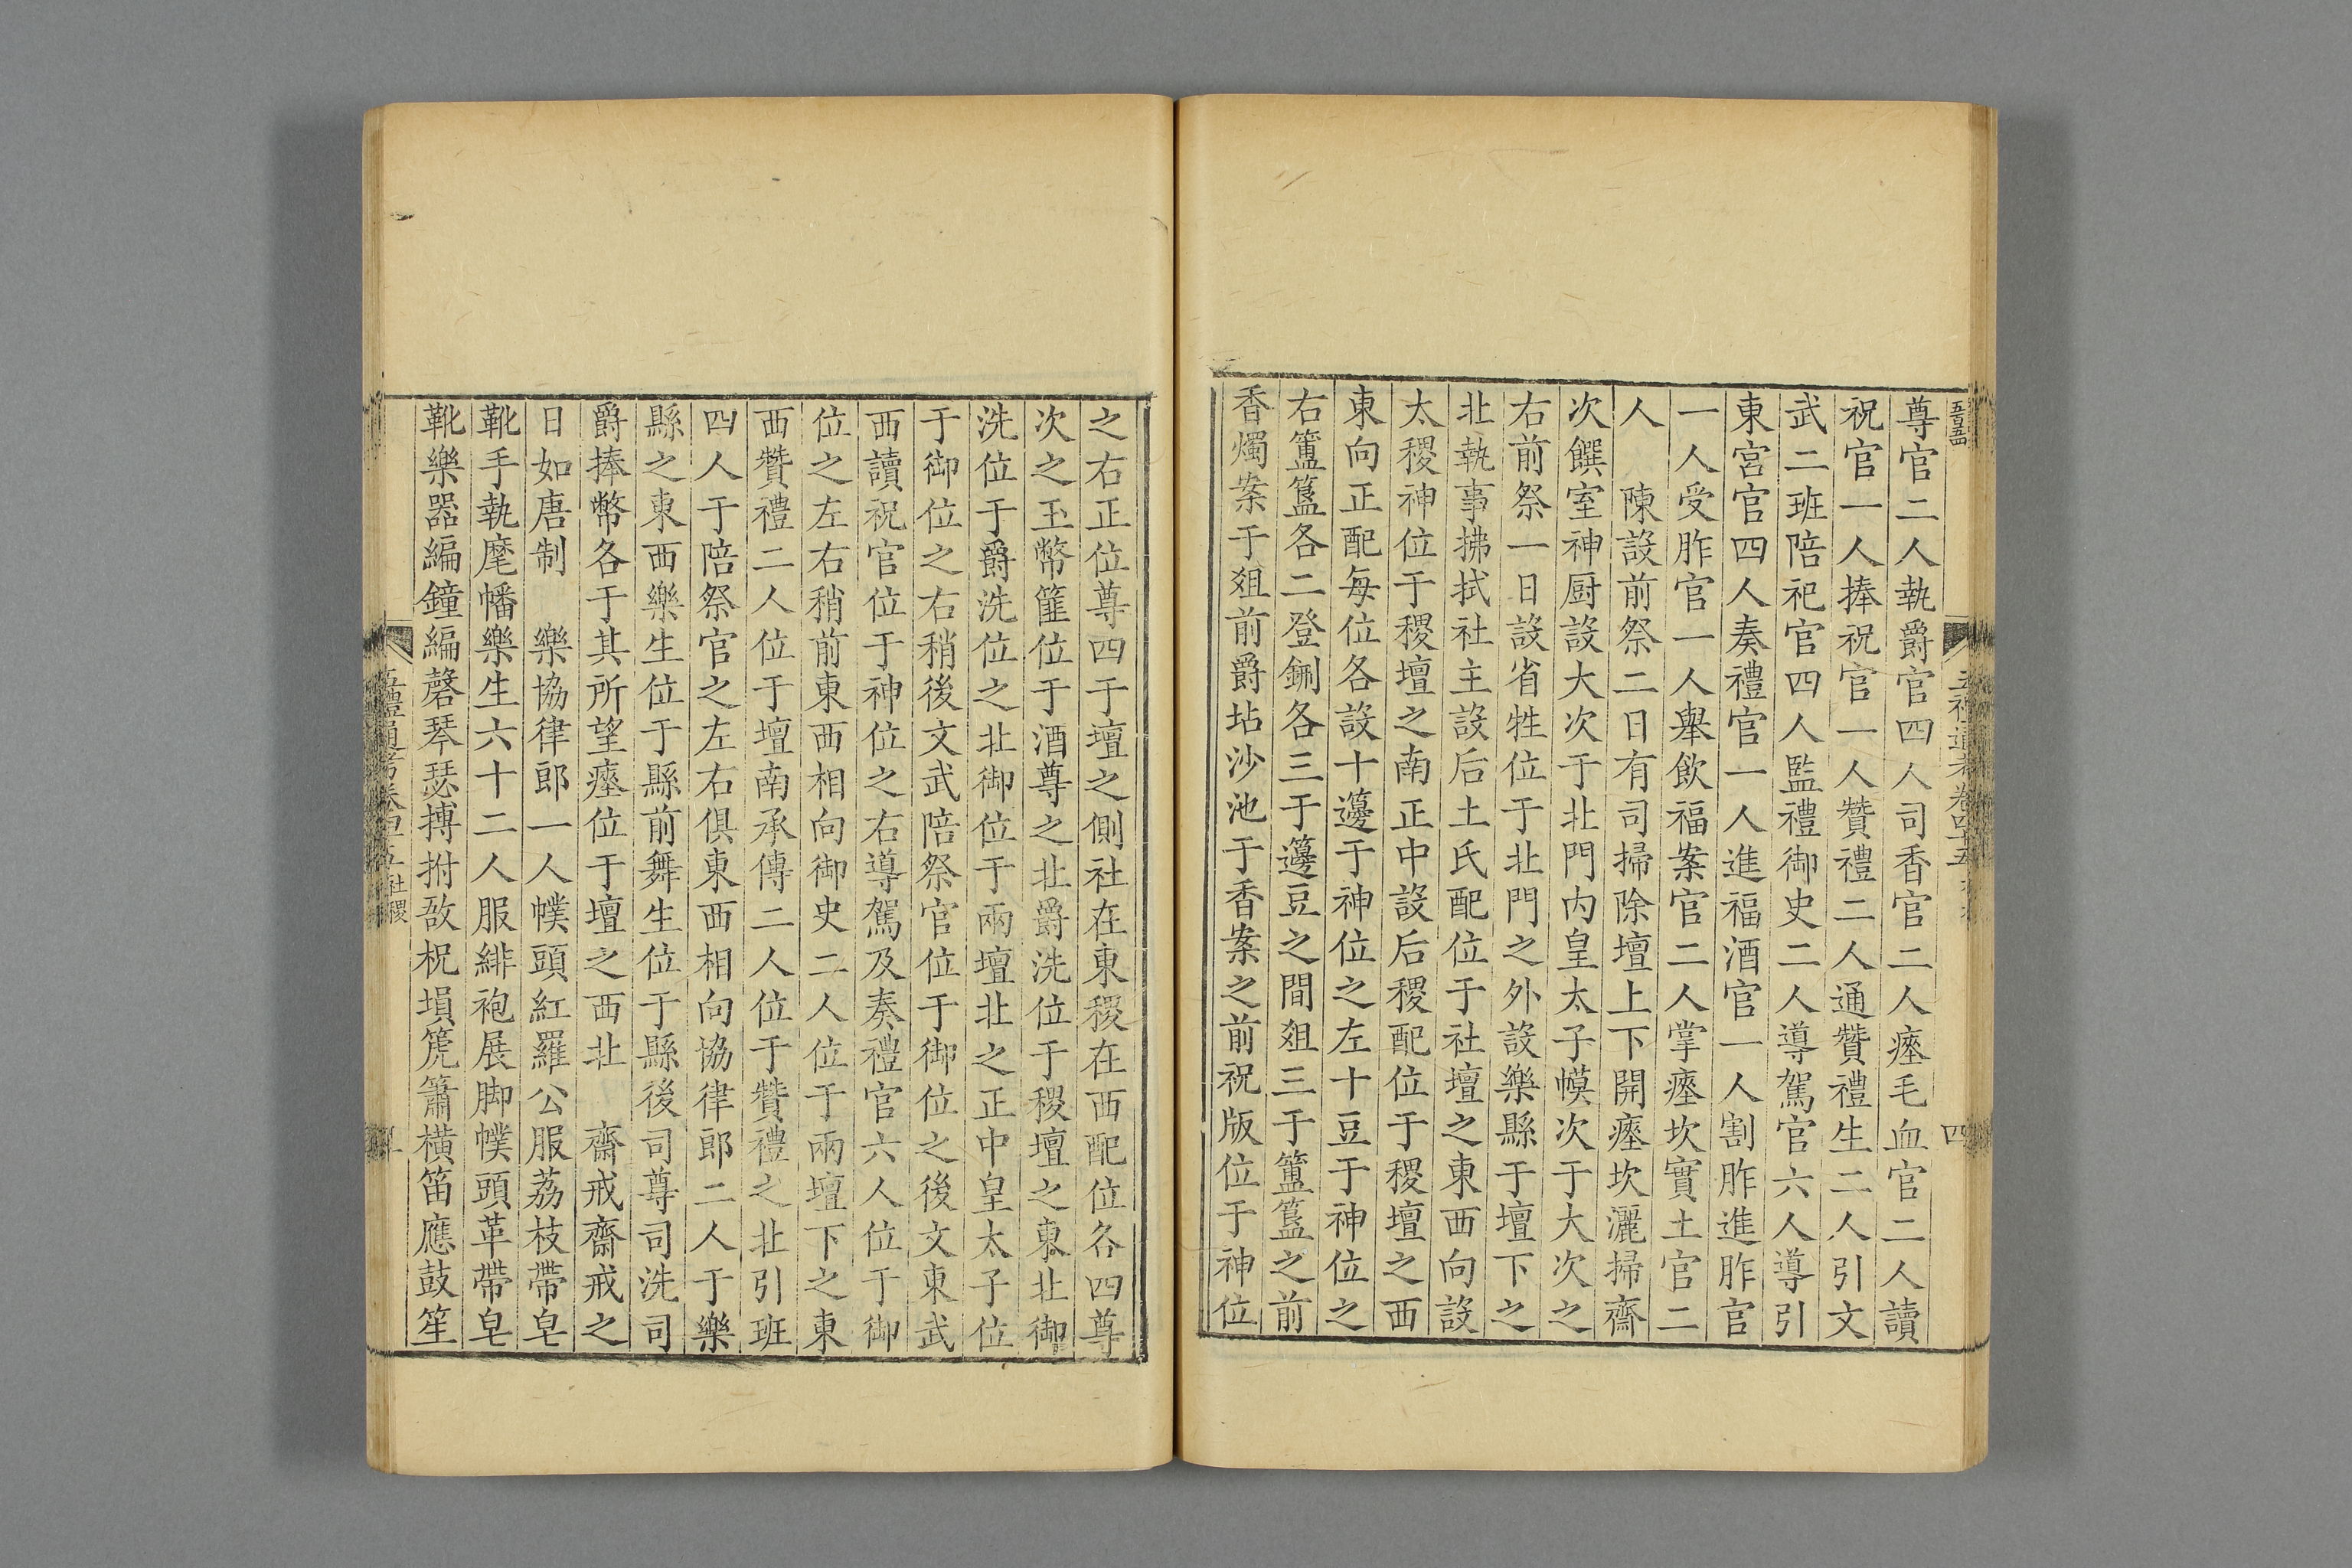 尊官二人執爵官四人司香官二人瘞毛血官二人讀
祝官一人捧祝官一人贊禮二人通贊禮生二人引文
武二班陪祀官四人監禮御史二人導駕官六人導引
東宮官四人奏禮官一人進福酒官一人割胙進胙官
一人受胙官一人舉飲福案官二人掌瘞坎實土官二
人　陳設前祭二日有司掃除壇上下開瘞坎灑掃齋
次饌室神厨設大次于北門內皇太子幙次于大次之
右前祭一日設省牲位于北門之外設樂縣于壇下之
北執事拂拭社主設后土氏配位于社壇之東西向設
太稷神位于稷壇之南正中設后稷配位于稷壇之西
東向正配每位各設十籩于神位之左十豆于神位之
右簠簋各二登鉶各三于籩豆之間俎三于簠簋之前
香燭案于俎前爵坫沙池于香案之前祝版位于神位
之右正位尊四于壇之側社在東稷在西配位各四尊
次之玉幣篚位于酒尊之北爵洗位于稷壇之東北御
洗位于爵洗位之北御位于兩壇北之正中皇太子位
于御位之右稍後文武陪祭官位于御位之後文東武
西讀祝官位于神位之右導駕及奏禮官六人位于御
位之左右稍前東西相向御史二人位于兩壇下之東
西贊禮二人位于壇南承傳二人位于贊禮之北引班
四人于陪祭官之左右俱東西相向協律郎二人于樂
縣之東西樂生位于縣前舞生位于縣後司尊司洗司
爵捧幣各于其所望瘞位于壇之西北　齋戒齋戒之
日如唐制　樂協律郎一人幞頭紅羅公服荔枝帶皂
靴手執麾幡樂生六十二人服緋袍展脚幞頭革帶皂
靴樂器編鐘編磬琴瑟搏拊敔柷壎箎簫橫笛應鼓笙
五禮通考卷四十五 社稷